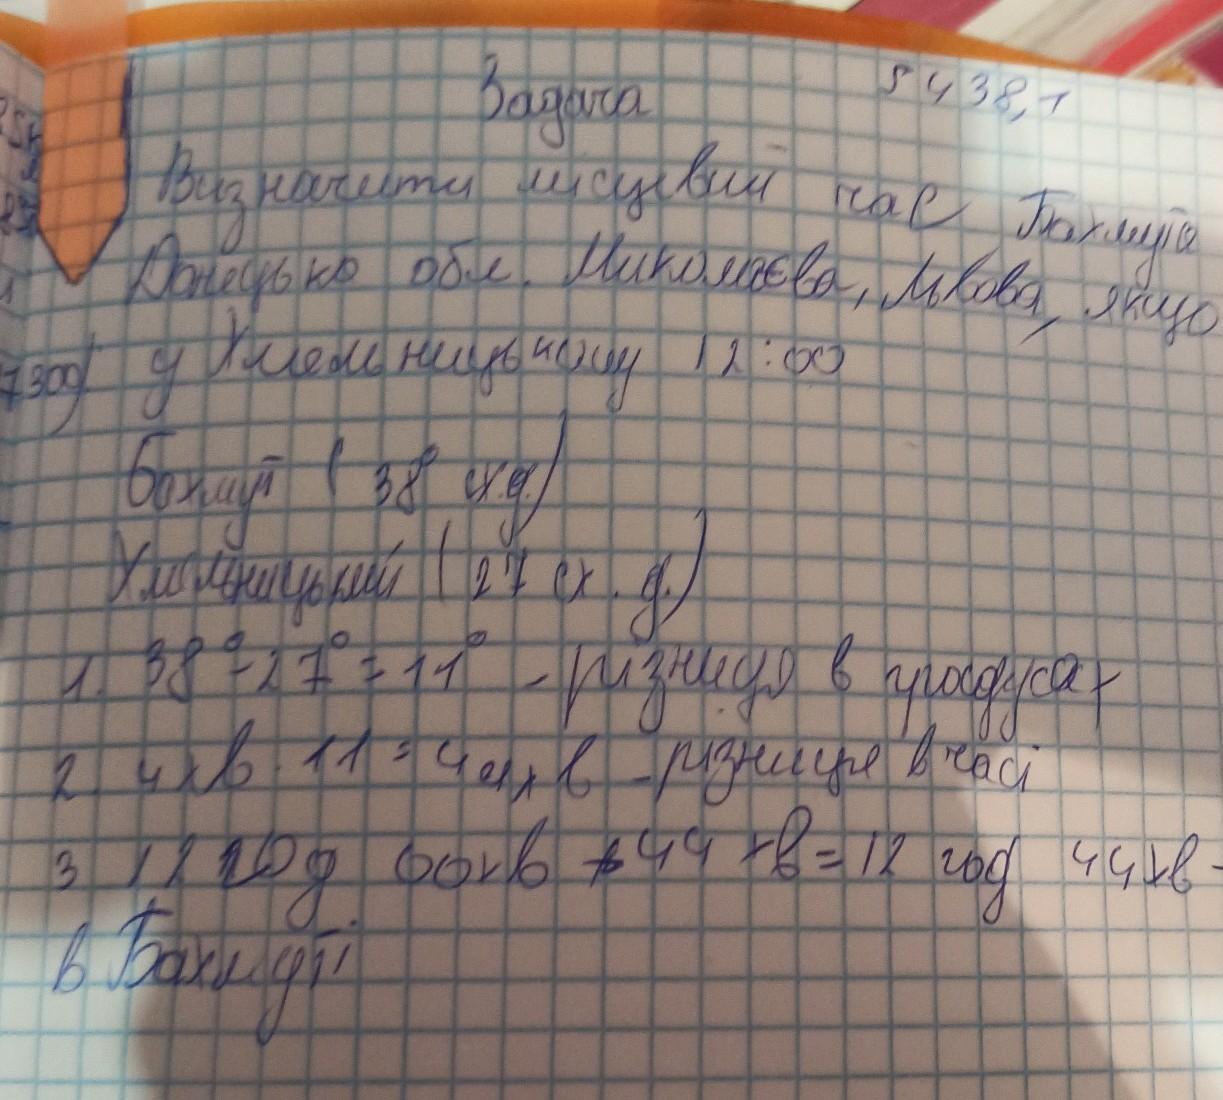 Задача
5 4 38,1
Визначити місцевий час Бахмута
Донецька обл. Миколаєва, Львова, якщо
у Хмельницькому 12:00
Бахмут (38° сх.д.)
Хмельницький (27 сх. д.)
1. 38° - 27° = 11° - різниця в градусах
2 4хв · 11 = 44хв - різниця в часі
3 12 год 00хв + 44 хв = 12 год 44хв -
в Бахмуті